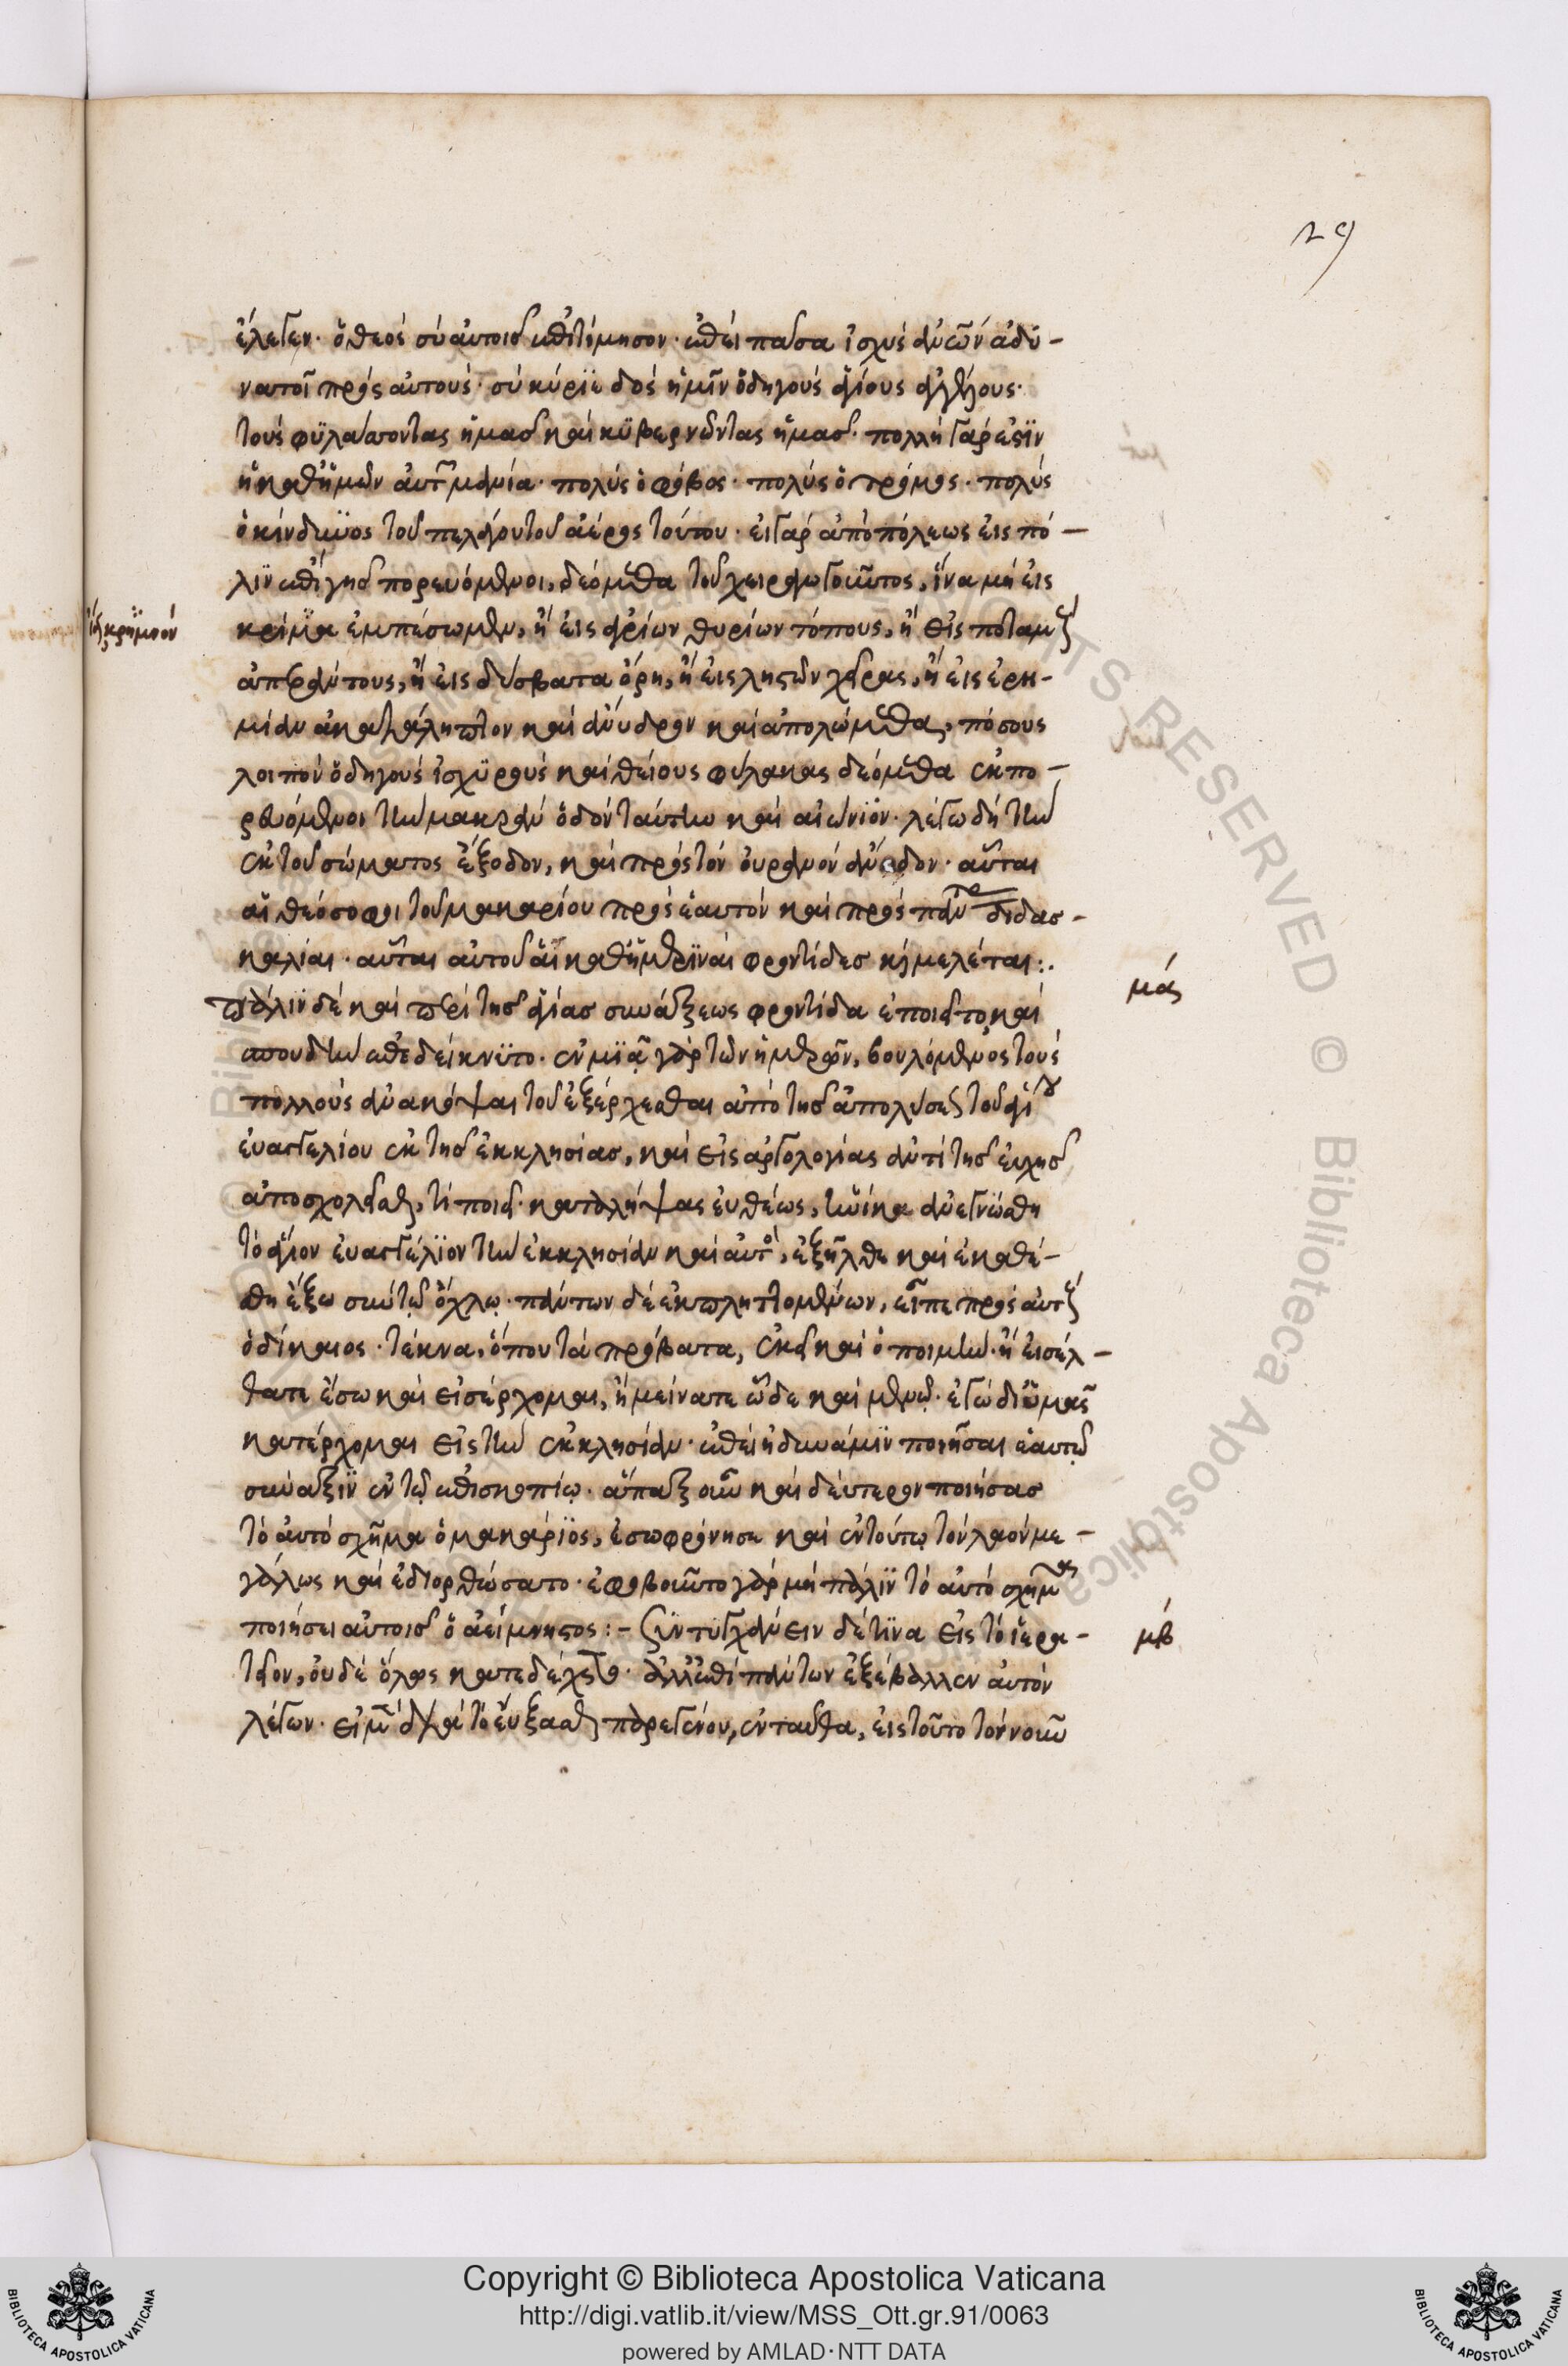 29
ἔλεγεν· ὁ θεός σύ αὐτοῖς ἐπιτίμησον· ἐπεί πᾶσα ἰσχύς ἀνῶν ἀδύ-
νατοῖ πρός αὐτούς· σύ κύριε δός ἡμῖν ὁδηγούς ἁγίους ἀγγέλους·
τούς φυλάσσοντας ἡμᾶς καί κυβερνῶντας ἡμᾶς· πολλή γάρ ἐστιν
ἡ καθ ἡμῶν αὐτῶν μανία· πολύς ὁ φόβος· πολύς ὁ τρόμος· πολύς
ὁ κίνδυνος τοῦ πελάγου τοῦ ἀέρος τούτου· εἰ γάρ ἀπό πόλεως εἰς πό-
λιν ἐπί γῆς πορευόμενοι, δεόμεθα τοῦ χειραγωγοῦντος, ἵνα μή εἰς
εἰς κρημνόν
κρίμα ἐμπέσωμεν, ἤ εἰς ἀγρίων θηρίων τόπους, ἤ εἰς ποταμούς
ἀπεράντους, ἤ εἰς δύσβατα ὄρη, ἤ εἰς ληστῶν χεῖρας, ἤ εἰς ἐρη-
μίαν ἀκατάληπτον καί ἄνυδρον καί ἀπολώμεθα, πόσους
λοιπόν ὁδηγούς ἰσχυρούς καί θείους φύλακας δεόμεθα ἐκπο-
ρευόμενοι τήν μακράν ὁδόν ταύτην καί αἰώνιον· λέγω δή τήν
ἐκ τοῦ σώματος ἔξοδον, καί πρός τόν οὐρανόν ἄνοδον· αὗται
αἱ θεόσοφοι τοῦ μακαρίου πρός ἑαυτόν καί πρός πάντας διδασ-
καλίαι· αὗται αὐτοῦ αἱ καθημεριναί φροντίδες καί μελέται:.
μα
πάλιν δέ καί περί τῆς ἁγίας συνάξεως φροντίδα ἐποιεῖτο καί
σπουδήν ἐπεδείκνυτο· ἐν μιᾷ γάρ τῶν ἡμερῶν, βουλόμενος τούς
πολλούς ἀνακόψαι τοῦ ἐξέρχεσθαι ἀπό τῆς ἀπολύσεως τοῦ ἁγίου
εὐαγγελίου ἐκ τῆς ἐκκλησίας, καί εἰς ἀργολογίας ἀντί τῆς εὐχῆς
ἀποσχολεῖσθαι, τί ποιεῖ· καταλήψας εὐθέως, ἡνίκα ἀνεγνώσθη
τό ἅγιον εὐαγγέλιον τήν ἐκκλησίαν καί αὐτός, ἐξῆλθε καί ἐκαθέ-
σθη ἔξω σύν τῷ ὄχλῳ· πάντων δέ ἐκπληττομένων, εἶπε πρός αὐτούς
ὁ δίκαιος· τέκνα, ὅπου τά πρόβατα, ἐκεῖ καί ὁ ποιμήν· ἤ εἰσέλ-
θατε ἔσω καί εἰσέρχομαι, ἤ μείνατε ὧδε καί μενῶ· ἐγώ δι ὑμᾶς
κατέρχομαι εἰς τήν ἐκκλησίαν· ἐπεί ἠδυνάμιν ποιῆσαι ἑαυτῷ
σύναξιν ἐν τῷ ἐπισκοπίῳ· ἅπαξ οὖν καί δεύτερον ποιήσας
τό αὐτό σχῆμα ὁ μακάριος, ἐσωφρόνησε καί ἐν τούτῳ τόν λαόν με-
γάλως καί ἐδιορθώσατο· ἐφοβοῦντο γάρ μή πάλιν τό αὐτό σχῆμα
ποιήσει αὐτοῖς ὁ ἀείμνηστος:- συντυγχάνειν δέ τινα εἰς τό ἱερα-
μβ
τεῖον, οὐδέ ὅλως κατεδέχετο· ἀλλ ἐπί πάντων ἐξέβαλλεν αὐτόν
λέγων· εἰ μέν διά τό εὔξασθαι παρεγένου, ἐνταῦθα, εἰς τοῦτο τόν νοῦν
Copyright © Biblioteca Apostolica Vaticana
http://digi.vatlib.it/view/MSS_Ott.gr.91/0063
powered by AMLAD·NTT DATA